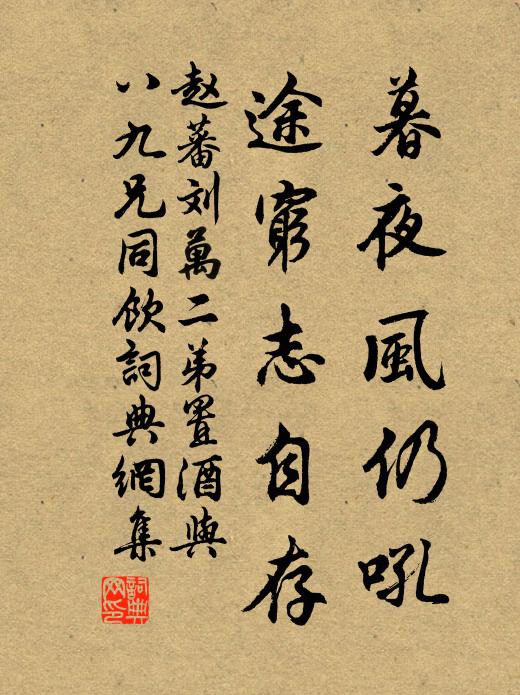 暮夜風仍吼
途窮志自存
赵蕃刘萬二弟置酒與
八九兄同飲詞典網集
詞典
网印